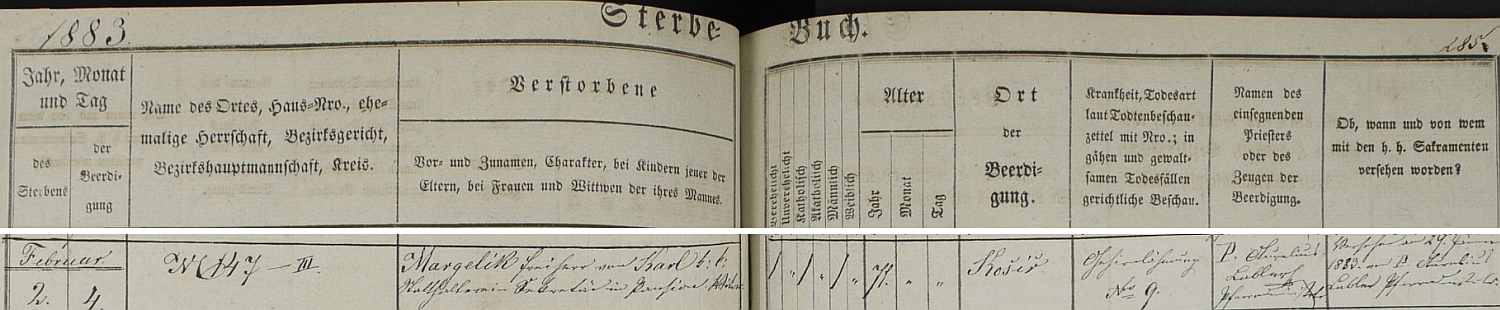 1883.
Sterbe-
Buch.
285.
Jahr, Monat
und Tag
des
Sterbens
der
Beerdi-
gung
Name des Ortes, Haus-Nro., ehe-
malige Herrschaft, Bezirksgericht,
Bezirkshauptmannschaft, Kreis.
Verstorbene
Vor- und Zunamen, Charakter, bei Kindern jener der
Eltern, bei Frauen und Wittwen der ihres Mannes.
Verehelicht
Unverehelicht
Katholisch
Akatholisch
Männlich
Weiblich
Alter
Jahr
Monat
Tag
Ort
der
Beerdi-
gung.
Krankheit, Todesart
laut Todtenbeschau-
zettel mit Nro.; in
gähen und gewalt-
samen Todesfällen
gerichtliche Beschau.
Namen des
einsegnenden
Priesters
oder des
Zeugen der
Beerdigung.
Ob, wann und von wem
mit den h. h. Sakramenten
versehen worden?
Februar
2. 4.
N 147 – III.
Margelik Freiherr von Karl k: k:
Statthalterein Sekretär in Pension
/ „ / „ / „ 71. „ „
Košíř
Gehirnlähmung
Nro 9.
P. Aurelius
Versehen am 29. Jänner
1883. von P. Aurelius